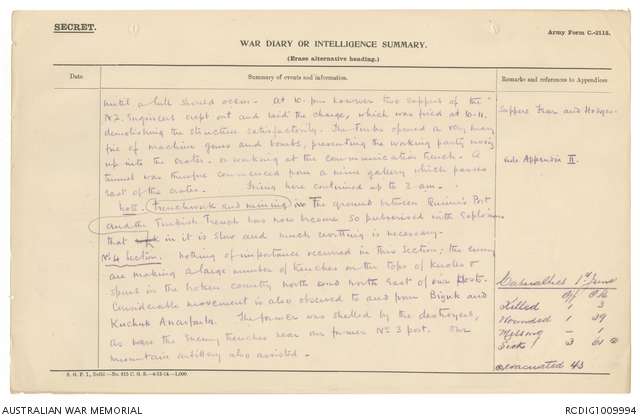 SECRET.
Army Form C.-2118.
WAR DIARY OR INTELLIGENCE SUMMARY.
(Erase alternative heading.)
Date
Summary of events and information.
Remarks and references to Appendices
until a lull should occur. At 10. pm however two sappers of the
N.Z. Engineers crept out and laid the charge, which was fired at 10-11.
demolishing the structure satisfactorily. The Turks opened a very heavy
fire of machine guns and bombs, preventing the working party moving
up into the crater. or working at the communication trench. A
tunnel was therefore commenced from a mine gallery which passes
east of the crater. Firing here continued up to 2 am.
Note. Trenchwork and mining The ground between Quinn's Post
and the Turkish Trench has now become so pulverised with explosions
that work in it is slow and much is necessary.
No 4 Section. Nothing of importance occurred in this Section; the enemy
are making a large number of trenches on the tops of knolls &
spurs in the broken country north and north East of our posts.
Considerable movement is also observed to and from Biyuk and
Kuchuk Anafarta. The former was shelled by the destroyers,
as were the Enemy trenches near our former No 3 post. Our
mountain artillery also assisted.
Sappers and Hodges
Vide Appendix II.
Casualties 1st June
Off O.R.
Killed 3
Wounded 1 29
Missing - 1
Sick 3 61
evacuated 43
S. G. P. I., Delhi
AUSTRALIAN WAR MEMORIAL
RCDIG1009994